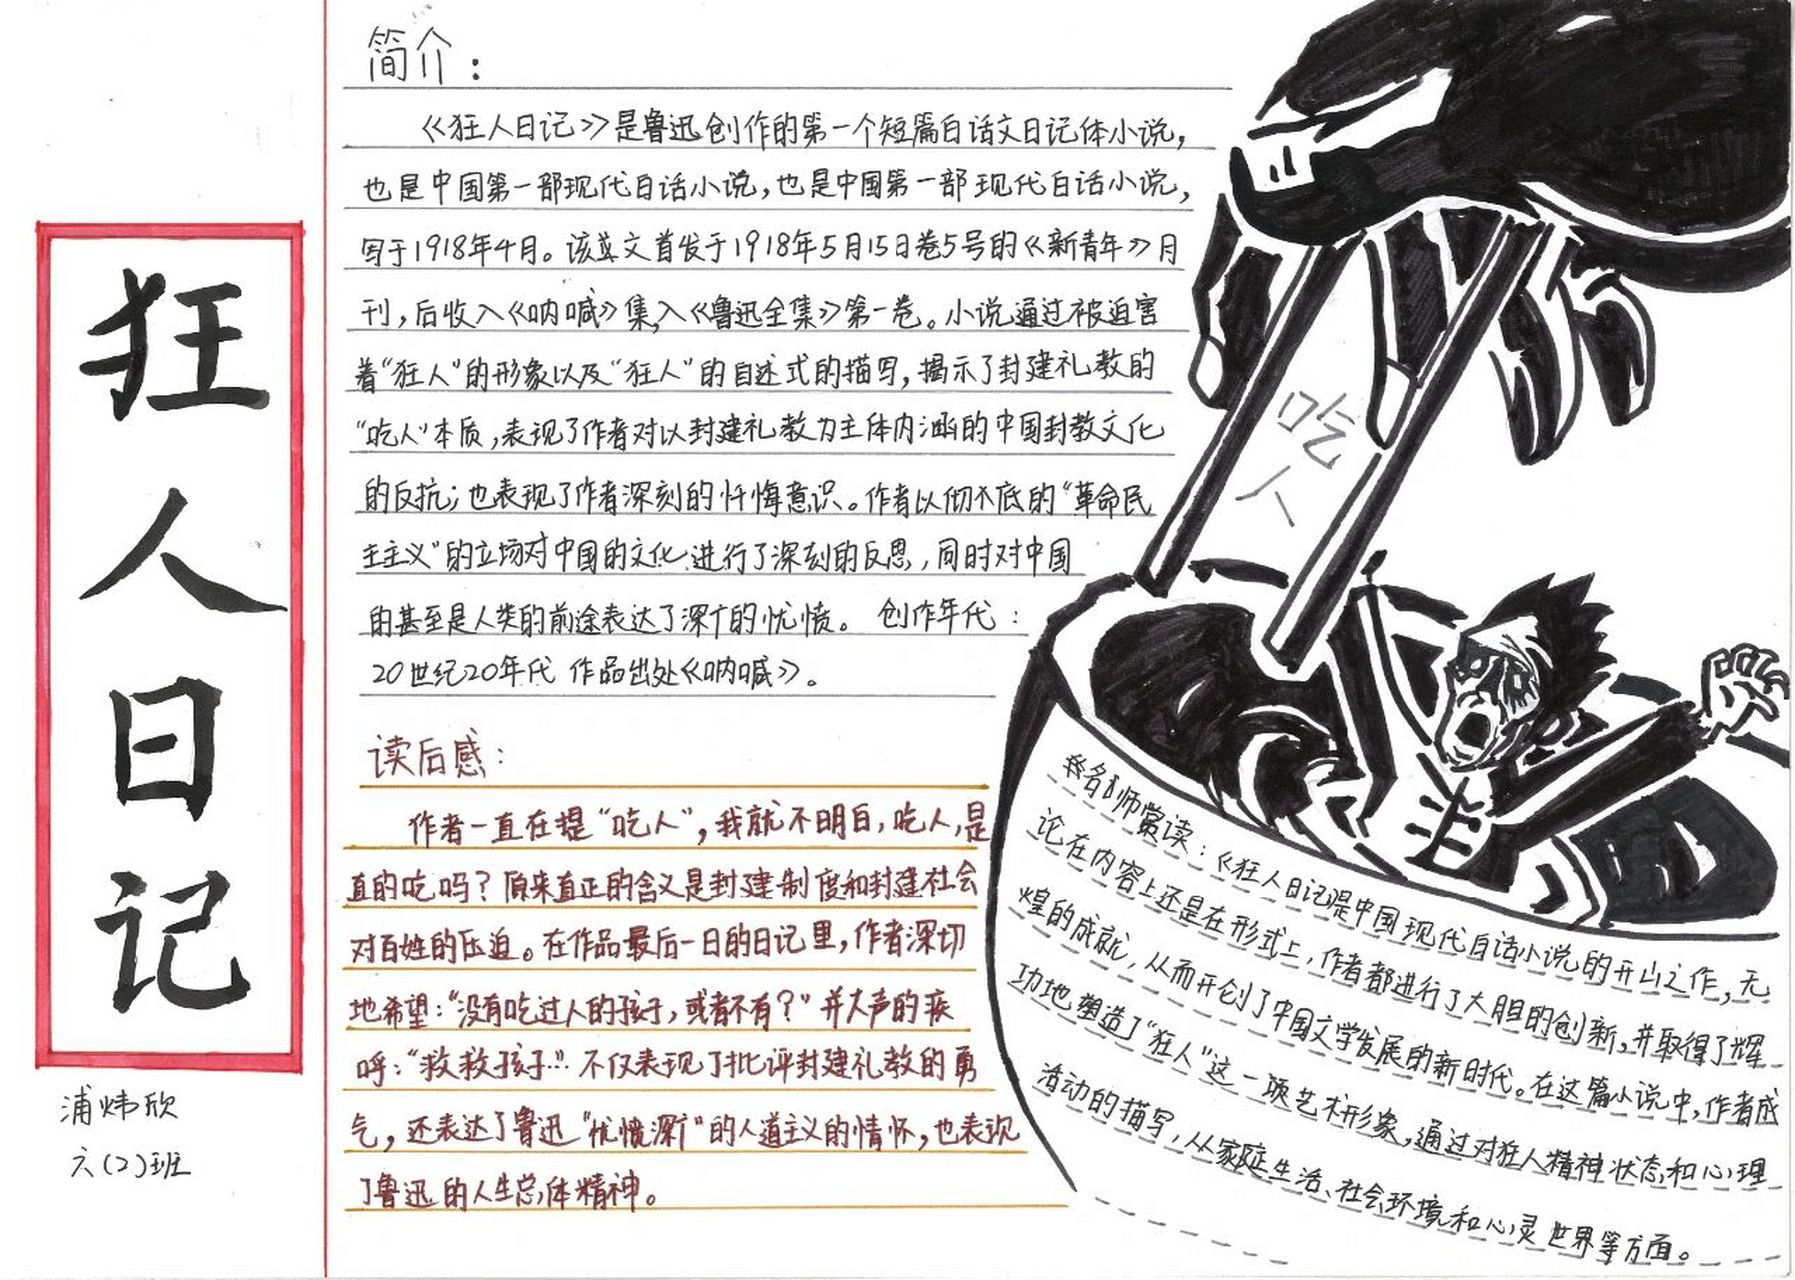 狂人日记
浦炜欣
六(2)班
简介:
《狂人日记》是鲁迅创作的第一个短篇白话文日记体小说,
也是中国第一部现代白话小说,也是中国第一部现代白话小说,
写于1918年4月。该文首发于1918年5月15日卷5号的《新青年》月
刊,后收入《呐喊》集,入《鲁迅全集》第一卷。小说通过被迫害
着“狂人”的形象以及“狂人”的自述式的描写,揭示了封建礼教的
“吃人”本质,表现了作者对以封建礼教为主体内涵的中国封教文化
的反抗;也表现了作者深刻的忏悔意识。作者以彻不底的“革命民
主主义”的立场对中国的文化进行了深刻的反思,同时对中国
的甚至是人类的前途表达了深广的忧愤。 创作年代:
20世纪20年代 作品出处《呐喊》。
读后感:
作者一直在提“吃人”,我就不明白,吃人,是
真的吃吗?原来真正的含义是封建制度和封建社会
对百姓的压迫。在作品最后一日的日记里,作者深切
地希望:“没有吃过人的孩子,或者不有?”并大声的疾
呼:“救救孩子…”不仅表现了批评封建礼教的勇
气,还表达了鲁迅“忧愤深广”的人道主义的情怀,也表现
了鲁迅的人生总体精神。
吃
人
名师赏读:《狂人日记》是中国现代白话小说的开山之作,无
论在内容上还是在形式上,作者都进行了大胆的创新,并取得了辉
煌的成就,从而开创了中国文学发展的新时代。在这篇小说中,作者成
功地塑造了“狂人”这一项艺术形象,通过对狂人精神状态和心理
活动的描写,从家庭生活、社会环境和心灵世界等方面。